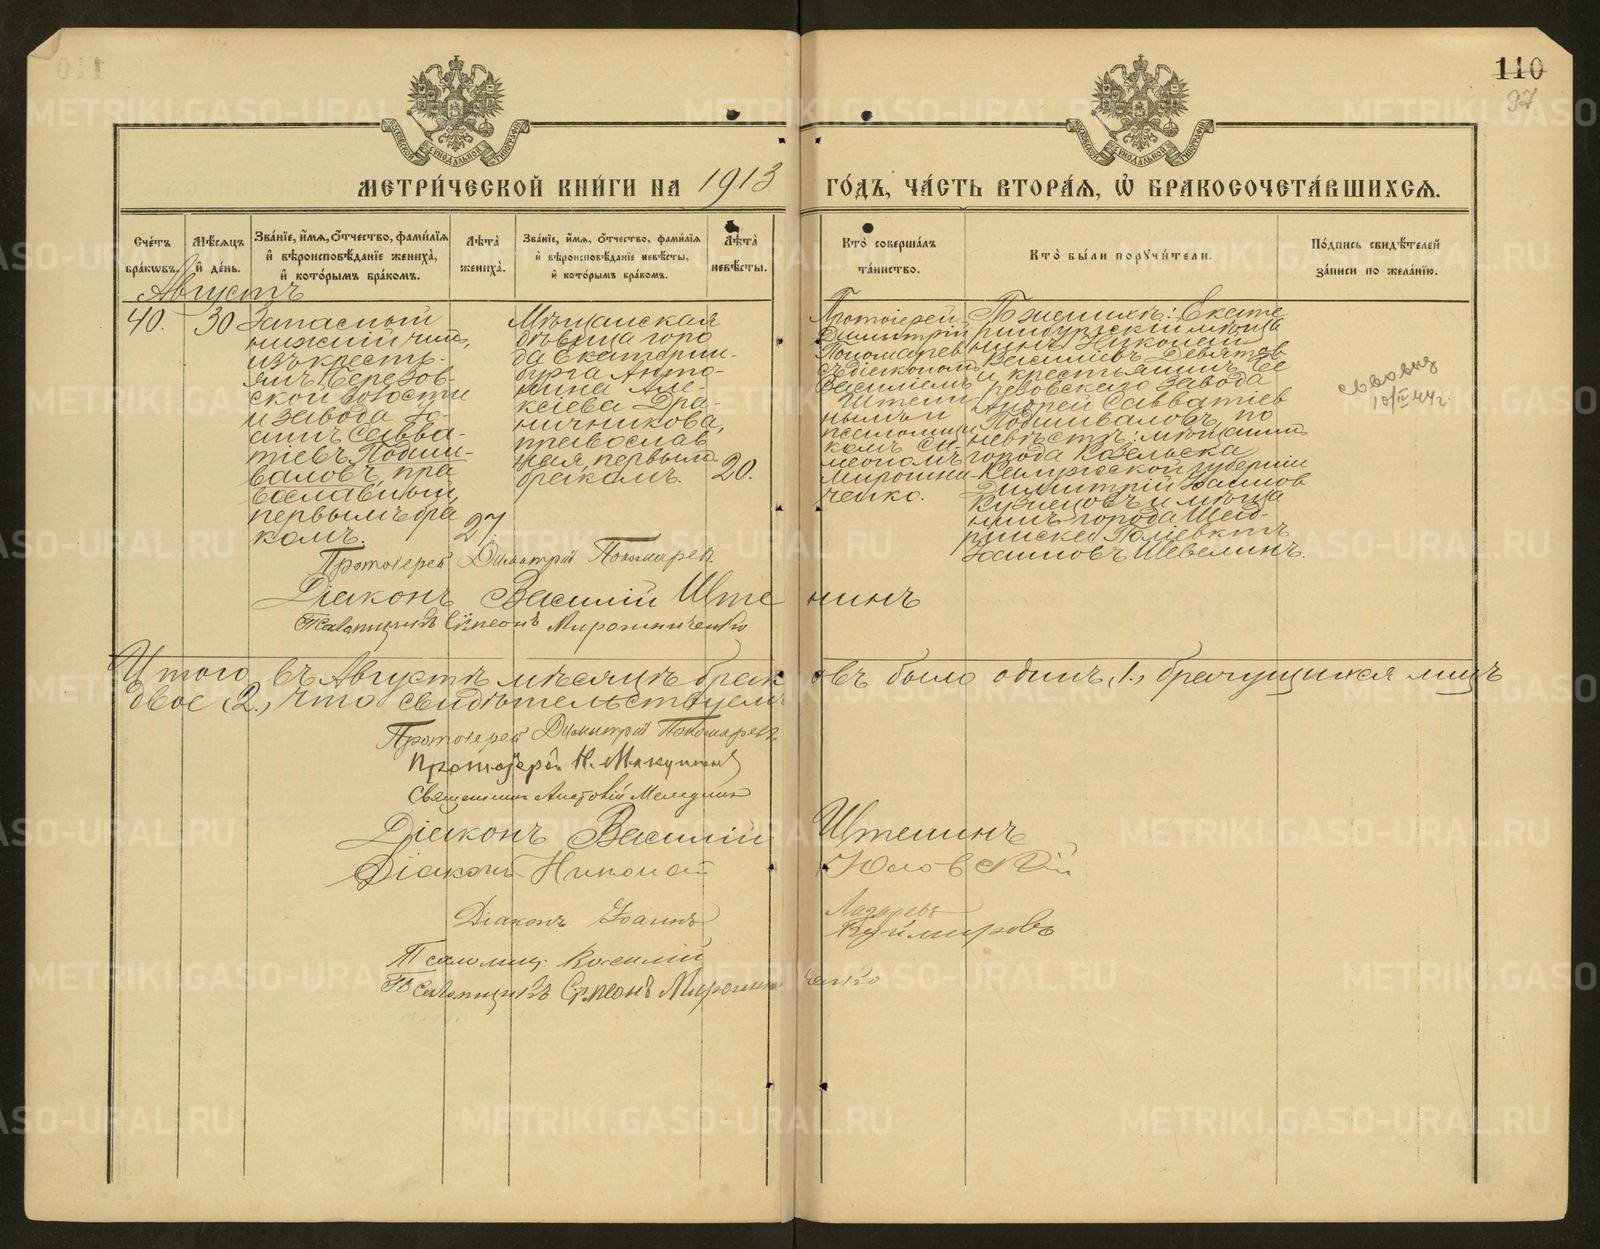 110
97
МЕТРИ́ЧЕСКОЙ КНИ́ГИ НА 1913 ГО́ДЪ, ЧА́СТЬ ВТОРА́Я, Ѽ БРАКОСОЧЕТА́ВШИХСЯ.
Сче́тъ бра́кѡвъ.
Мѣ́сяцъ и҆ де́нь.
Зва́нїе, и҆́мя, ѻ҆́тчество, фами́лїя и҆ вѣроисповѣ́данїе жениха̀, и҆ кото́рымъ бра́комъ.
Лѣ́та жениха̀.
Зва́нїе, и҆́мя, ѻ҆́тчество, фами́лїя и҆ вѣроисповѣ́данїе невѣ́сты, и҆ кото́рымъ бра́комъ.
Лѣ́та невѣ́сты.
Кто̀ соверша́лъ та́инство.
Кто̀ бы́ли поручи́тели.
По́дпись свидѣ́телей за́писи по жела́нїю.
Августъ
40.
30
Запасный
нижній чинъ,
изъ кресть-
янъ Березов-
ской волости
и завода Іо-
аннъ Савва-
тіевъ Подши-
валовъ, пра
вославный,
первымъ бра
комъ.
27.
Мѣщанская
дѣвица горо
да Екатерин-
бурга Анто-
нина Але-
ксіева Дра-
ничникова,
православ
ная, первымъ
бракомъ.
20.
Протоіерей
Димитрій
Пономаревъ
съ діакономъ
Василіемъ
Штени-
нымъ и
псаломщи
комъ Си-
меономъ
Мирошни-
ченко.
По женихѣ: Екате
ринбургскій мѣща
нинъ Николай
Василіевъ Девятов
и крестьянинъ Бе
резовскаго завода
Андрей Савватіев
Подшиваловъ, по
невѣстѣ: мѣщанинъ
города Козельска
Калужской губерніи
Димитрій Іоаннов
Кузнецовъ и мѣща
нинъ города Шад-
ринска
Іоанновъ Шевелинъ.
10/II 44 г.
Протоіерей Димитрій Пономаревъ
Діаконъ Василій Штенинъ
Псаломщикъ Сѵмеонъ Мирошниченко
Итого въ Августѣ мѣсяцѣ браковъ было одинъ, 1., брачущихся лицъ
двое, 2., что свидѣтельствуемъ
Протоіерей Димитрій Пономаревъ.
Протоіерей Н.
Священникъ Анатолій
Діаконъ Василій Штенинъ
Діаконъ Николай
Діаконъ Іоаннъ Лазаревъ
Псаломщ. Василій
Псаломщикъ Сѵмеонъ Мирошниченко
METRIKI.GASO-URAL.RU